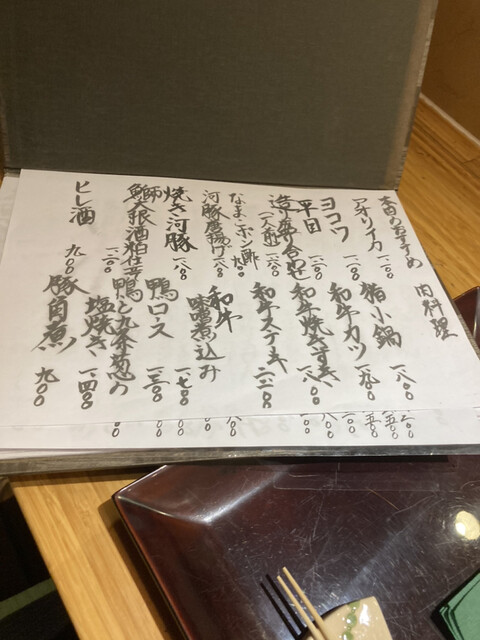 本日のおすすめ
アオリイカ 一二〇〇
ヨコワ 一二〇〇
平目 一二〇〇
造り盛り合わせ
(一人前) 一八〇〇
なまこポン酢 九〇〇
河豚唐揚げ 一六〇〇
焼き河豚 一八〇〇
鰤大根酒粕仕立 一二〇〇
ヒレ酒 九〇〇
肉料理
猪小鍋 一八〇〇
和牛カツ 一九〇〇
和牛焼きすき 一八〇〇
和牛ステーキ 二二〇〇
和牛
味噌煮込み 一七〇〇
鴨ロース 一三〇〇
鴨と九条葱の
塩焼き 一四〇〇
豚角煮 九〇〇